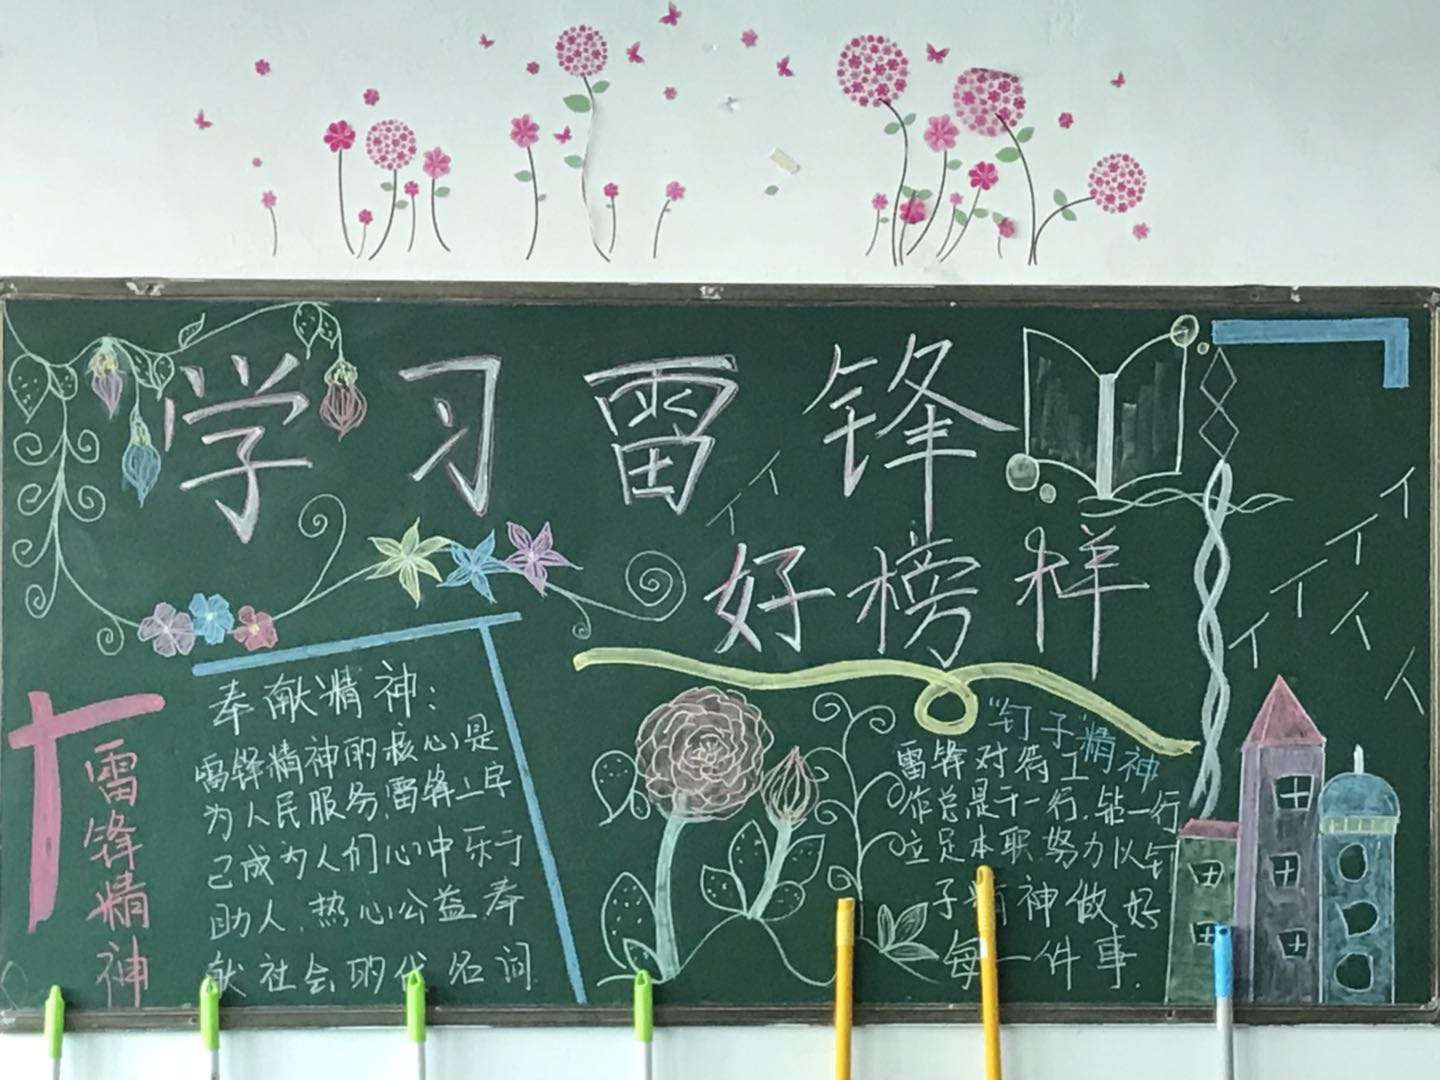 学习雷锋
好榜样
雷锋精神
奉献精神：
雷锋精神的核心是
为人民服务,雷锋二字
己成为人们心中乐于
助人,热心公益奉
献社会的代名词
“钉子”精神
雷锋对待工
作总是干一行,钻一行
立足本职努力以钉
子精神做好
每一件事.